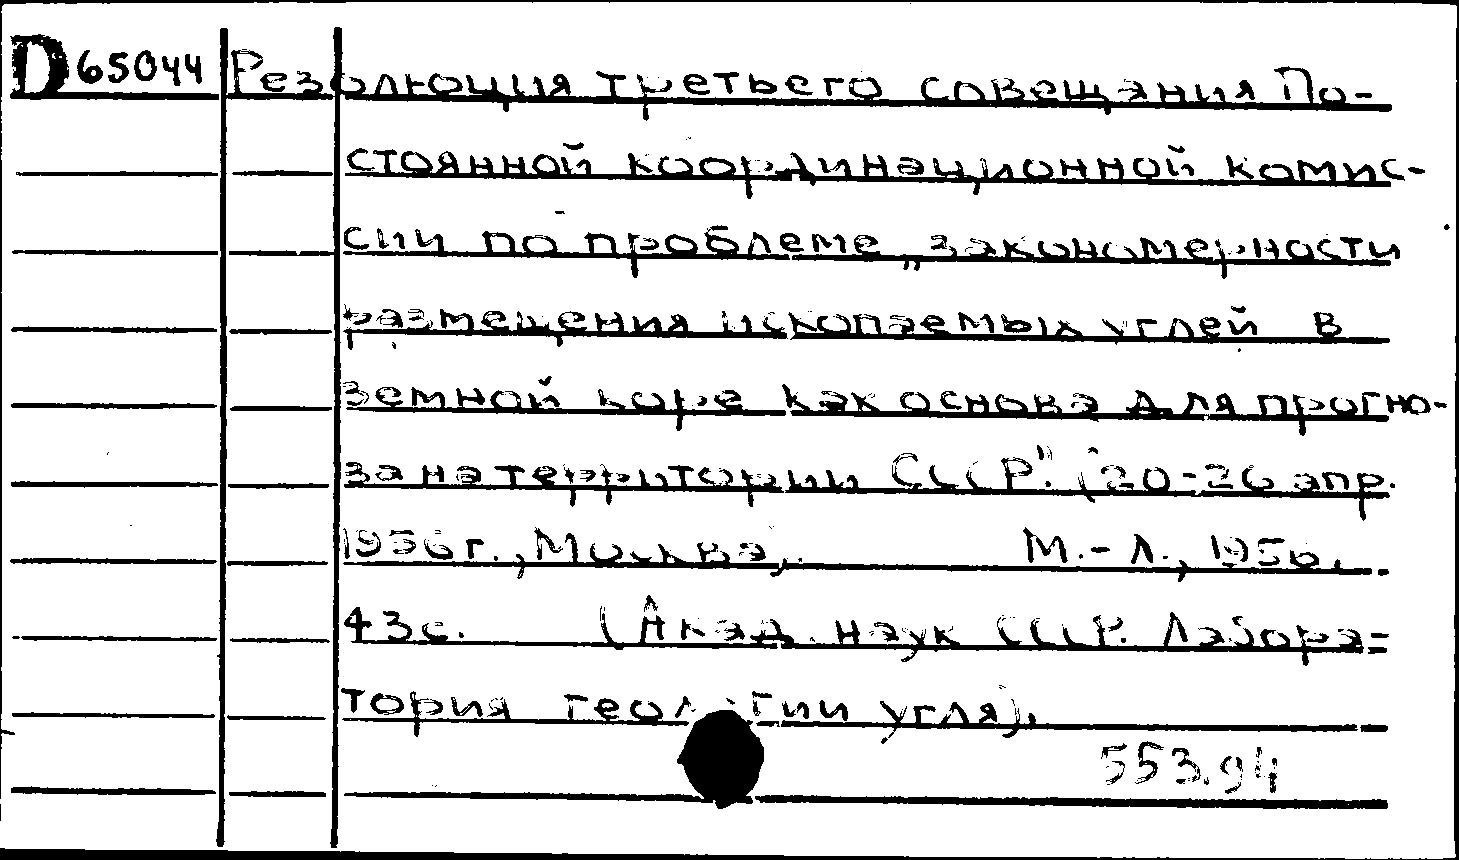 D65044 Резолюция третьего совещания По-
стоянной координационной комис-
сии по проблеме „закономерности
размещения ископаемых углей в
земной коре как основа для прогно-
за на территории СССР". (20-26 апр.
1956г., Москва). М.-Л., 1956.
43с. (Акад. наук СССР. Лабора-
тория геологии угля).
553.94